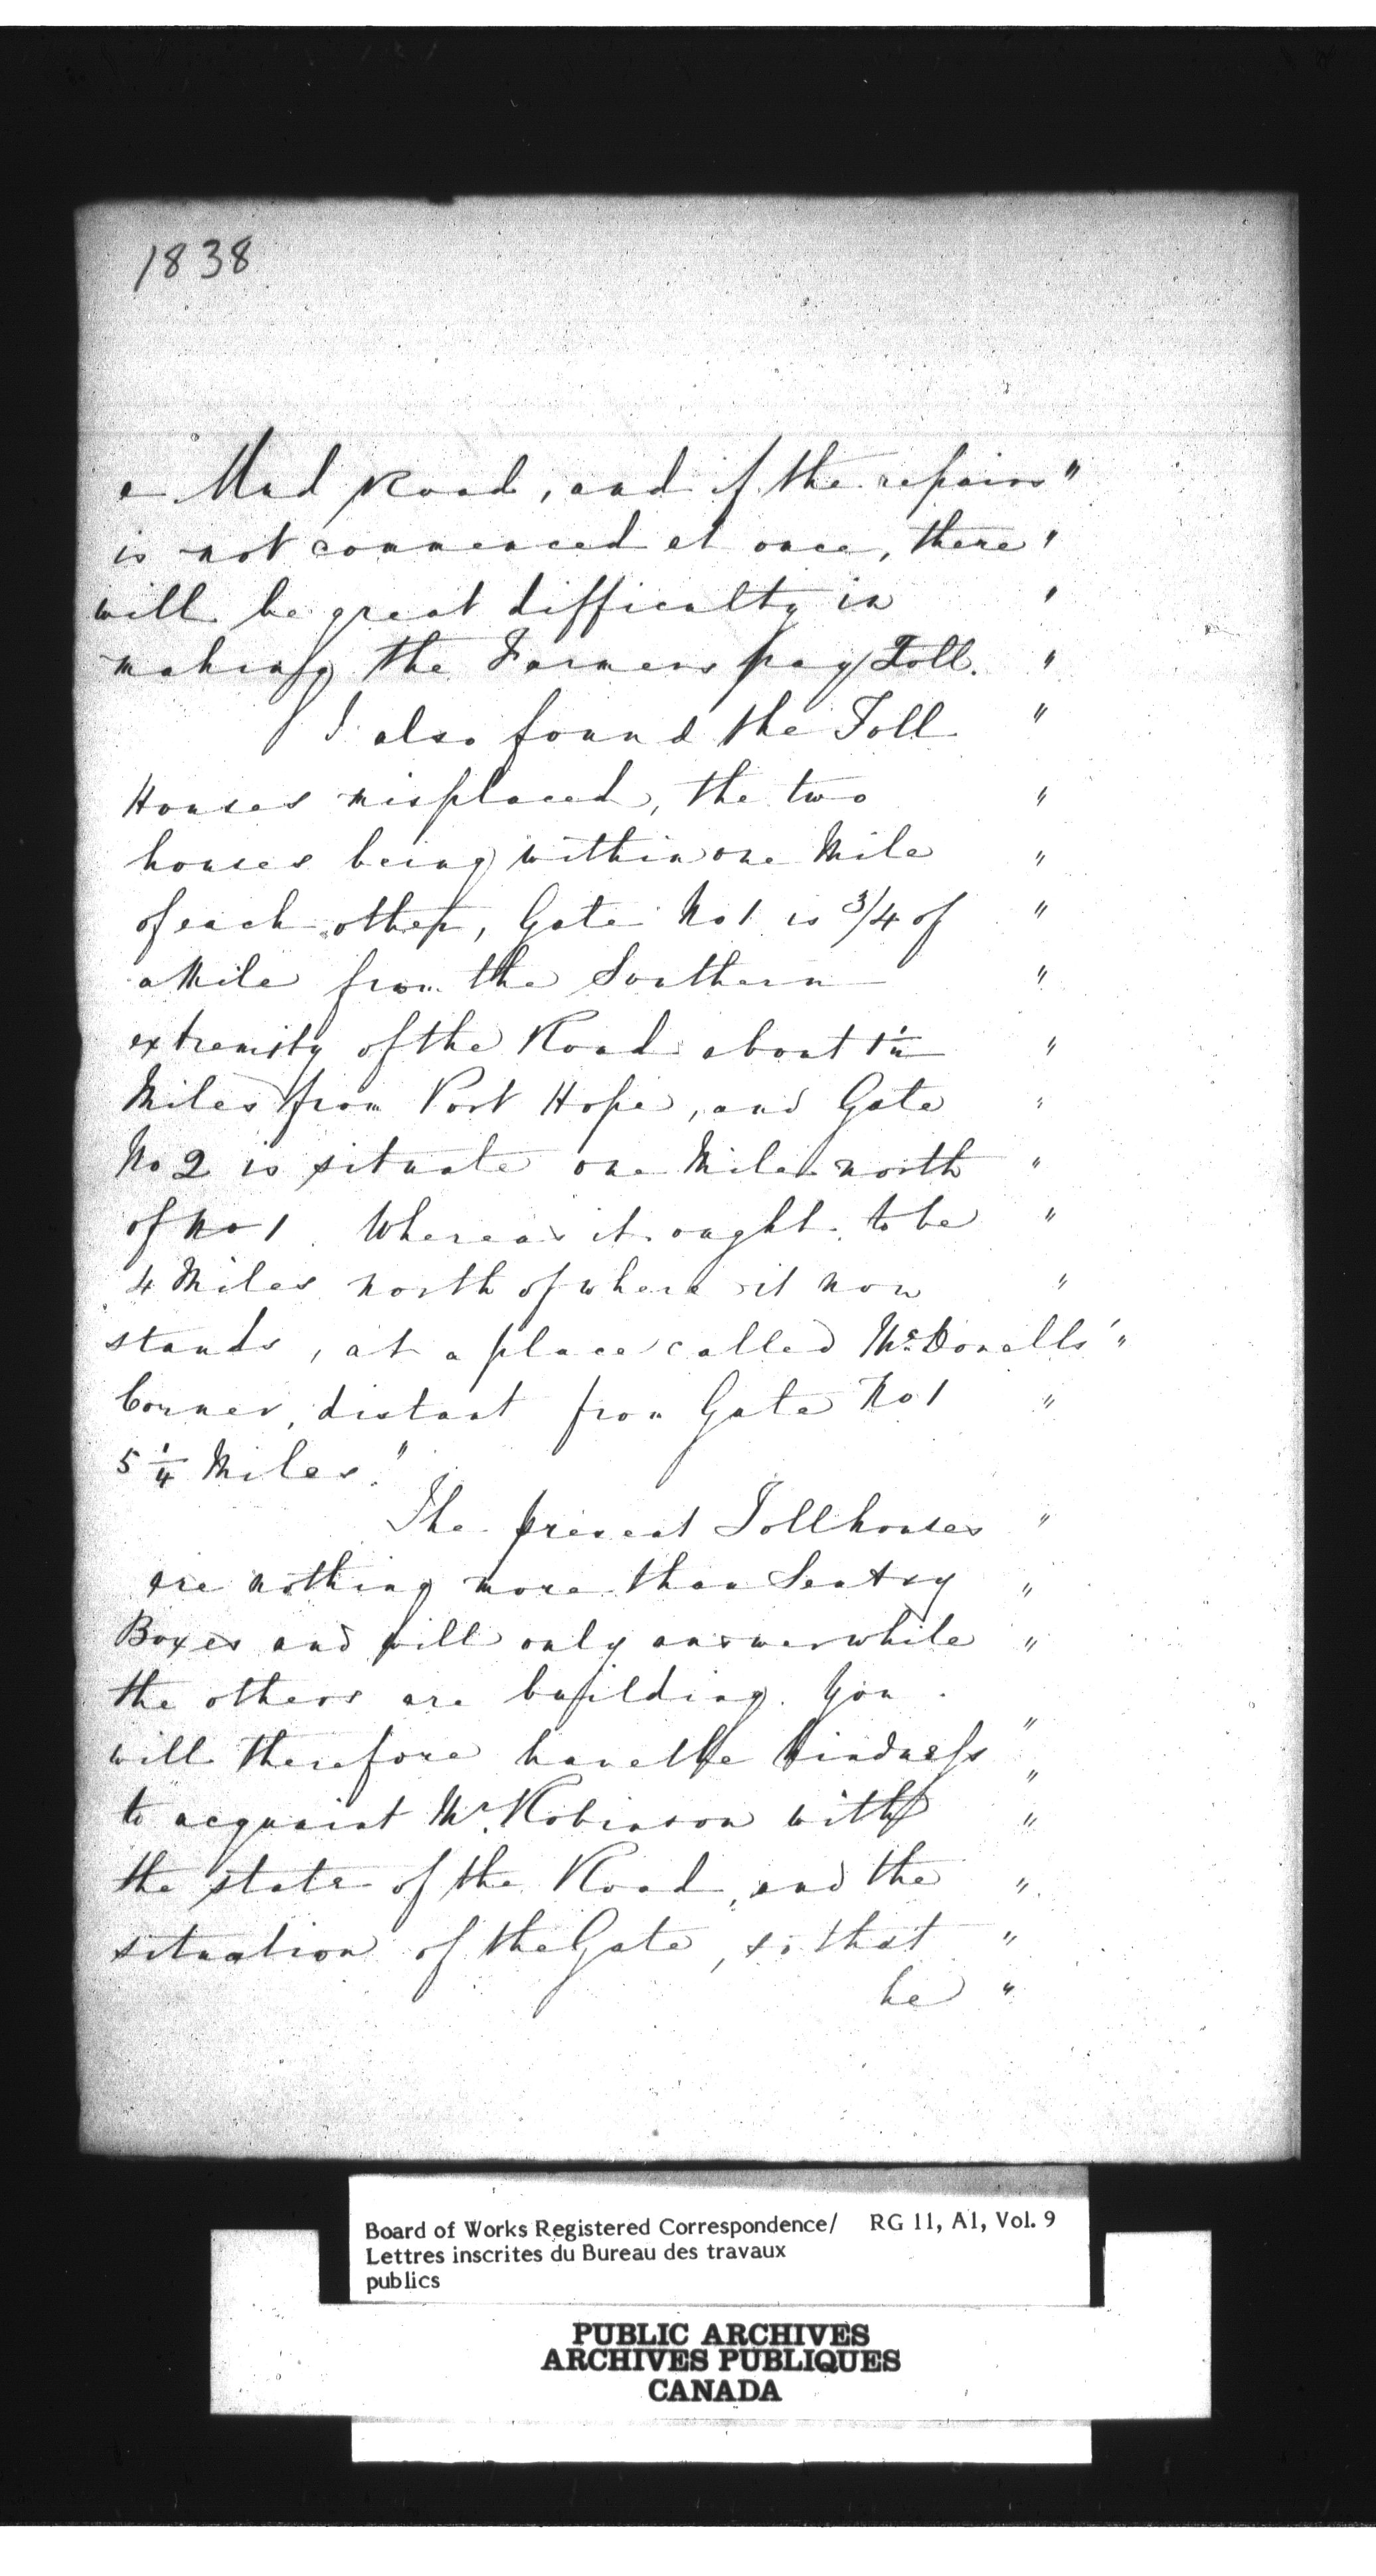 1838
a Mud Road, and if the repairs "
is not commenced at once, there "
will be great difficulty in "
making the Farmers pay Toll. "
I also found the Toll "
Houses misplaced, the two "
houses being within one Mile "
of each other, Gate No 1 is 3/4 of "
a Mile from the Southern "
extremity of the Road about "
Miles from Port Hope, and Gate "
No 2 is situate one Mile north "
of No 1. Whereas it ought to be "
4 Miles north of where it now "
stands, at a place called McDonells' "
Corner, distant from Gate No 1 "
5 1/4 Miles."
The present Tollhouses "
are nothing more than Sentry "
Boxes and will only answer while "
the others are building. You "
will therefore have the kindness "
to acquaint Mr. Robinson with "
the state of the Road, and the "
situation of the Gate, so that "
he "
Board of Works Registered Correspondence/ RG 11, A1, Vol. 9
Lettres inscrites du Bureau des travaux
publics
PUBLIC ARCHIVES
ARCHIVES PUBLIQUES
CANADA